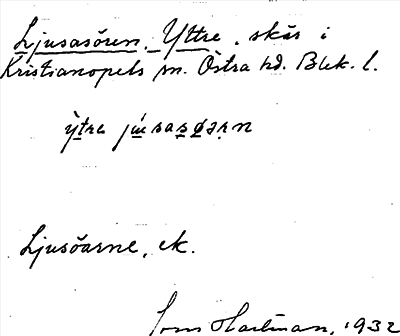 Ljusasören, Yttre, skär i
Kristianopels sn. Östra hd. Blek. l.
ỳtre júsasøarn
Ljusöarne, ek.
Hartman, 1932